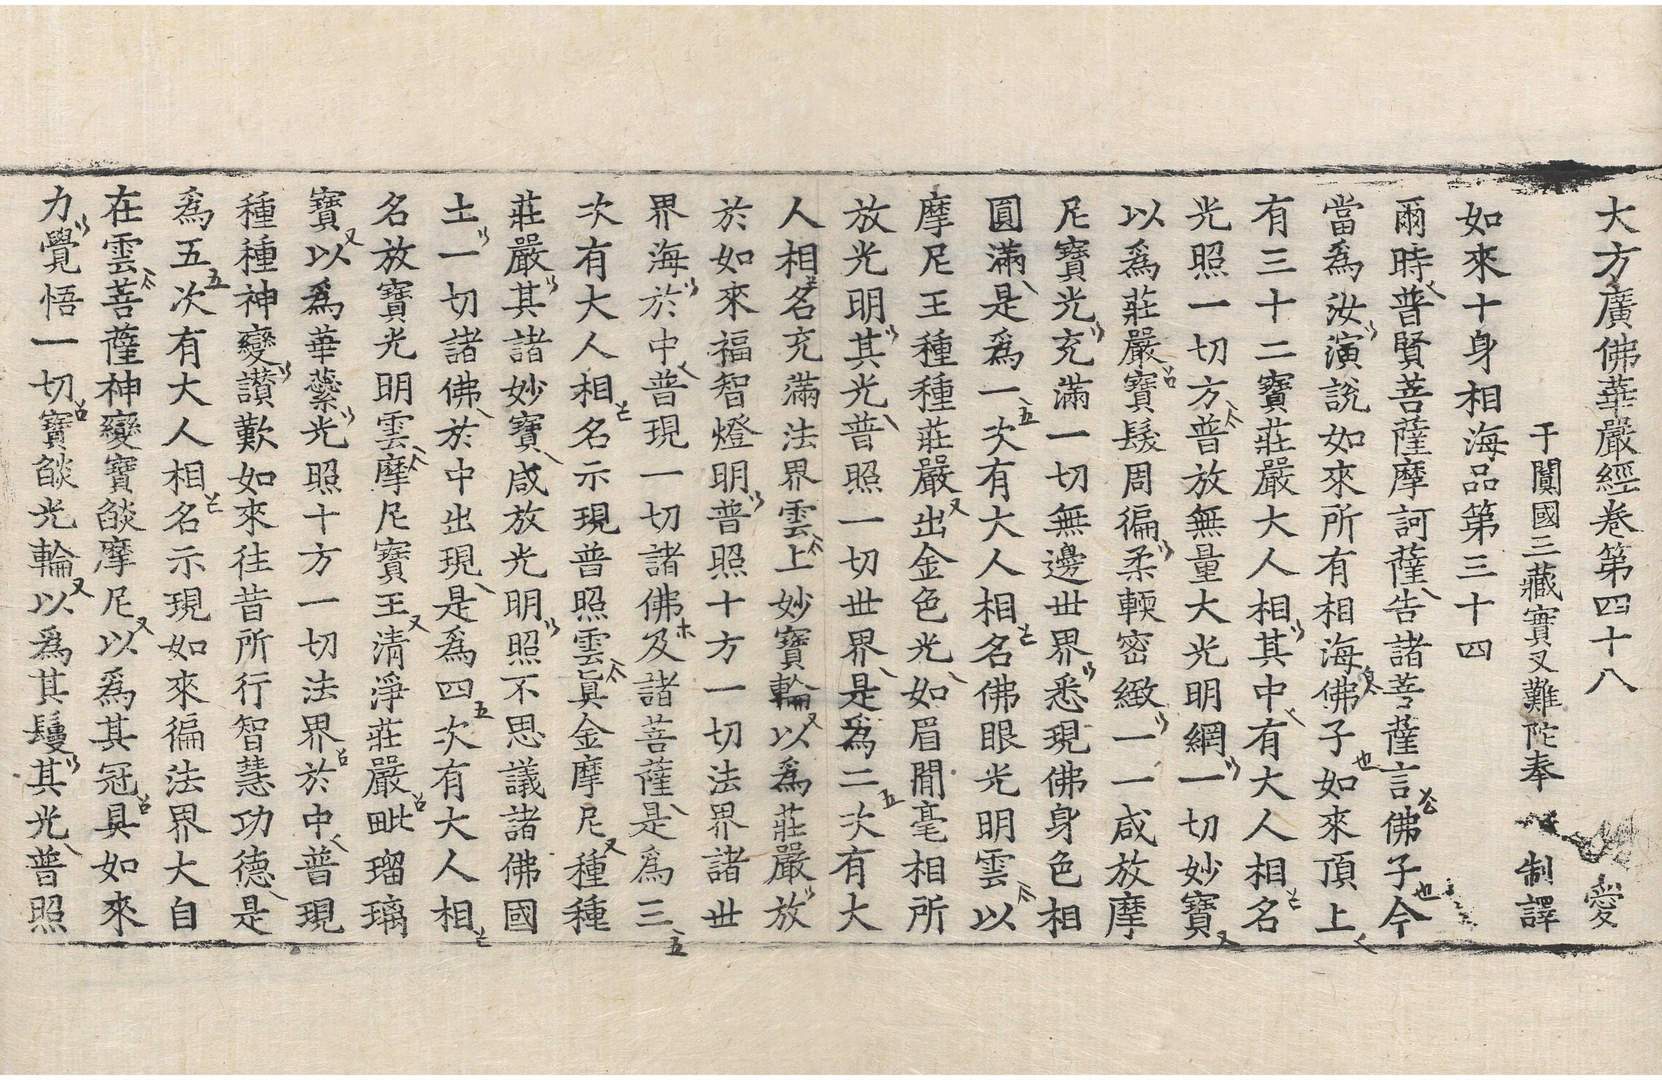 大方廣佛華嚴經卷第四十八 愛
于闐國三藏實叉難陀奉 制譯
如來十身相海品第三十四
爾時普賢菩薩摩訶薩告諸菩薩言佛子今
當爲汝演說如來所有相海佛子如來頂上
有三十二寶莊嚴大人相其中有大人相名
光照一切方普放無量大光明網一切妙寶
以爲莊嚴寶髮周徧柔輭密緻一一咸放摩
尼寶光充滿一切無邊世界悉現佛身色相
圓滿是爲一次有大人相名佛眼光明雲以
摩尼王種種莊嚴出金色光如眉間毫相所
放光明其光普照一切世界是爲二次有大
人相名充滿法界雲上妙寶輪以爲莊嚴放
於如來福智燈明普照十方一切法界諸世
界海於中普現一切諸佛及諸菩薩是爲三
次有大人相名示現普照雲眞金摩尼種種
莊嚴其諸妙寶咸放光明照不思議諸佛國
土一切諸佛於中出現是爲四次有大人相
名放寶光明雲摩尼寶王清淨莊嚴毗瑠璃
寶以爲華蘂光照十方一切法界於中普現
種種神變讚歎如來往昔所行智慧功德是
爲五次有大人相名示現如來徧法界大自
在雲菩薩神變寶燄摩尼以爲其冠具如來
力覺悟一切寶燄光輪以爲其鬘其光普照